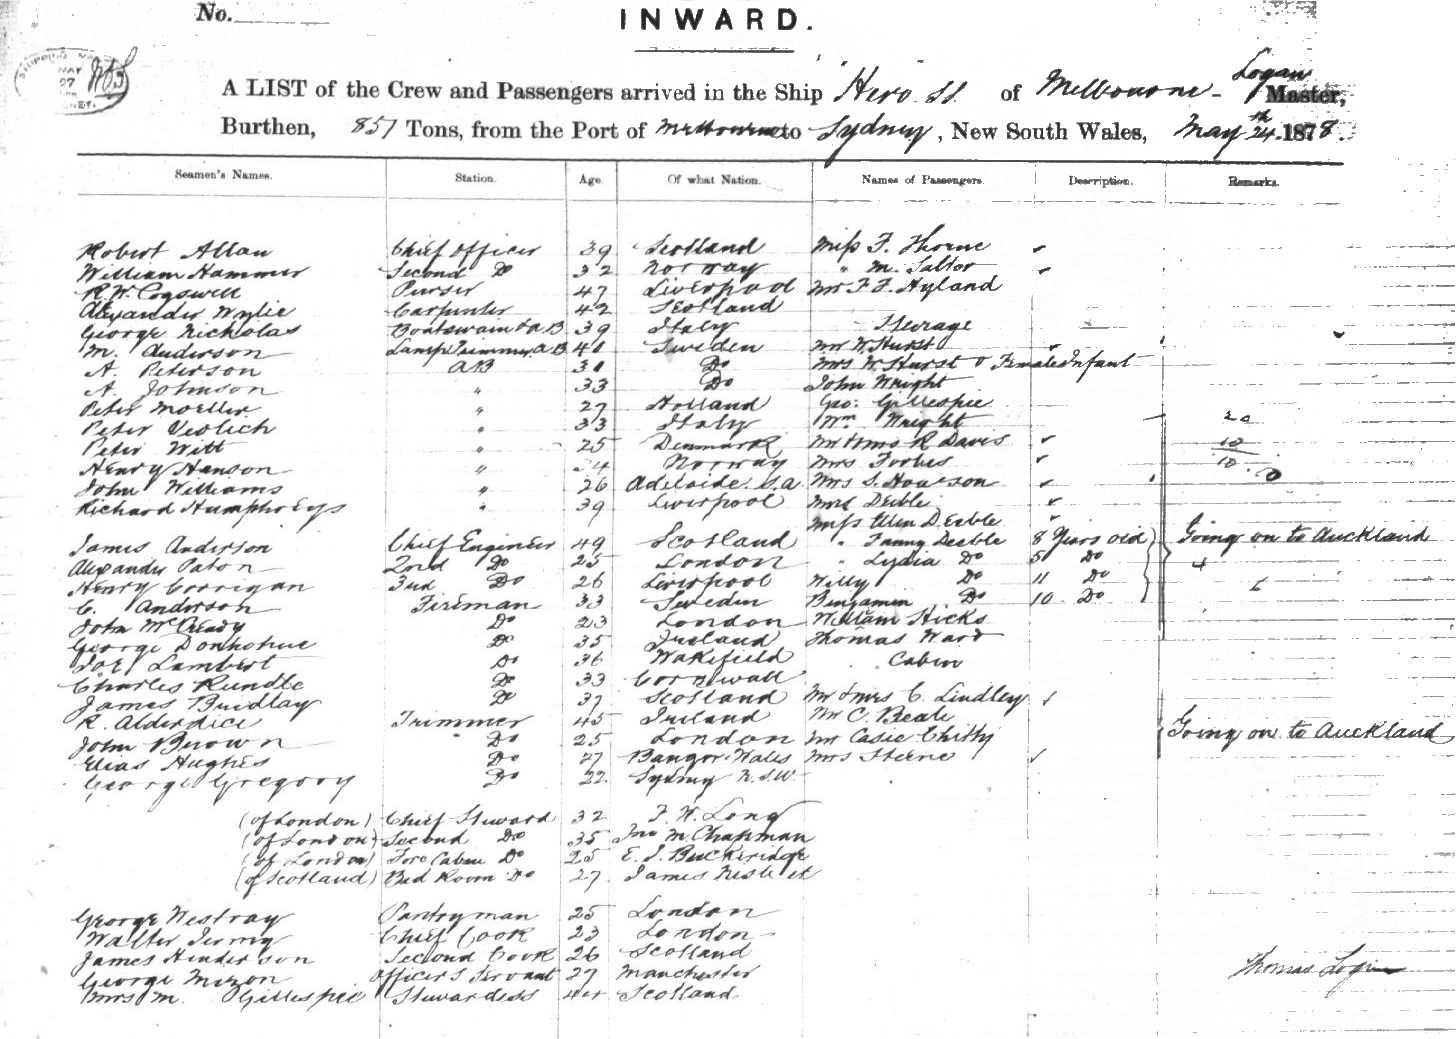 No.
INWARD.
A LIST of the Crew and Passengers arrived in the Ship "Hero" s.s. of Melbourne - Logan Master,
Burthen, 857 Tons, from the Port of Melbourne to Sydney, New South Wales, May 24th 1878.
Seamen's Names. Station. Age. Of what Nation. Names of Passengers. Description. Remarks.
Robert Allan Chief Officer 39 Scotland Miss F. Thorne
William Hammer Second Do 32 Norway " M. Saltor
R. W. Cogswell Purser 47 Liverpool Mr F. F. Hyland
Alexander Wylie Carpenter 42 Scotland
George Nicholas Boatswain & AB 39 Italy Steerage
M. Anderson Lamp Trimmer AB 41 Sweden Mr W. Hurst
A. Peterson AB 31 Do Mrs W. Hurst & Female Infant
A. Johnson " 33 Do John Wright
Peter Moeller " 27 Holland Geo: Gillespie
Peter Veolich " 33 Italy Wm Wright 20
Peter Witt " 25 Denmark Mr & Mrs R Davis 10
Henry Hanson " 34 Norway Mrs Forbes 10
John Williams " 26 Adelaide S.A. Mrs S. 
Richard Humphreys " 39 Liverpool Mrs Deeble
Miss Ellen Deeble
James Anderson Chief Engineer 49 Scotland " Fanny Deeble 8 Years old Going on to Auckland
Alexander Paton 2nd Do 25 London " Lydia Do 5 Do 4
Henry Corrigan 3rd Do 26 Liverpool Willy Do 11 Do 6
C. Anderson Fireman 33 Sweden Benjamin Do 10 Do
John McCready Do 23 London William Hicks
George Donhohue Do 35 Ireland Thomas Ward
Joe Lambert Do 36 Wakefield Cabin
Charles Rundle Do 33 Cornwall
James Bridlay Do 37 Scotland Mr & Mrs C. Lindley
R. Alderdice Trimmer 45 Ireland Mr C. Beale
John Brown Do 25 London Mr Casie Chitty Going on to Auckland
Elias Hughes Do 27 Bangor Wales Mrs Steene
George Gregory Do 22 Sydney N.S.W
(of London) Chief Steward 32 F. W. Long
(of London) Second Do 35 Jno M. Chapman
(of London) Fore Cabin Do 25 E. J. Buckeridge
(of Scotland) Bed Room Do 27 James Nisbet
George Westray Pantryman 25 London
Walter Jermy Chief Cook 23 London
James Henderson Second Cook 26 Scotland
George Mizon Officers Servant 27 Manchester
Mrs M. Gillespie Stewardess 44 Scotland
Thomas Logan